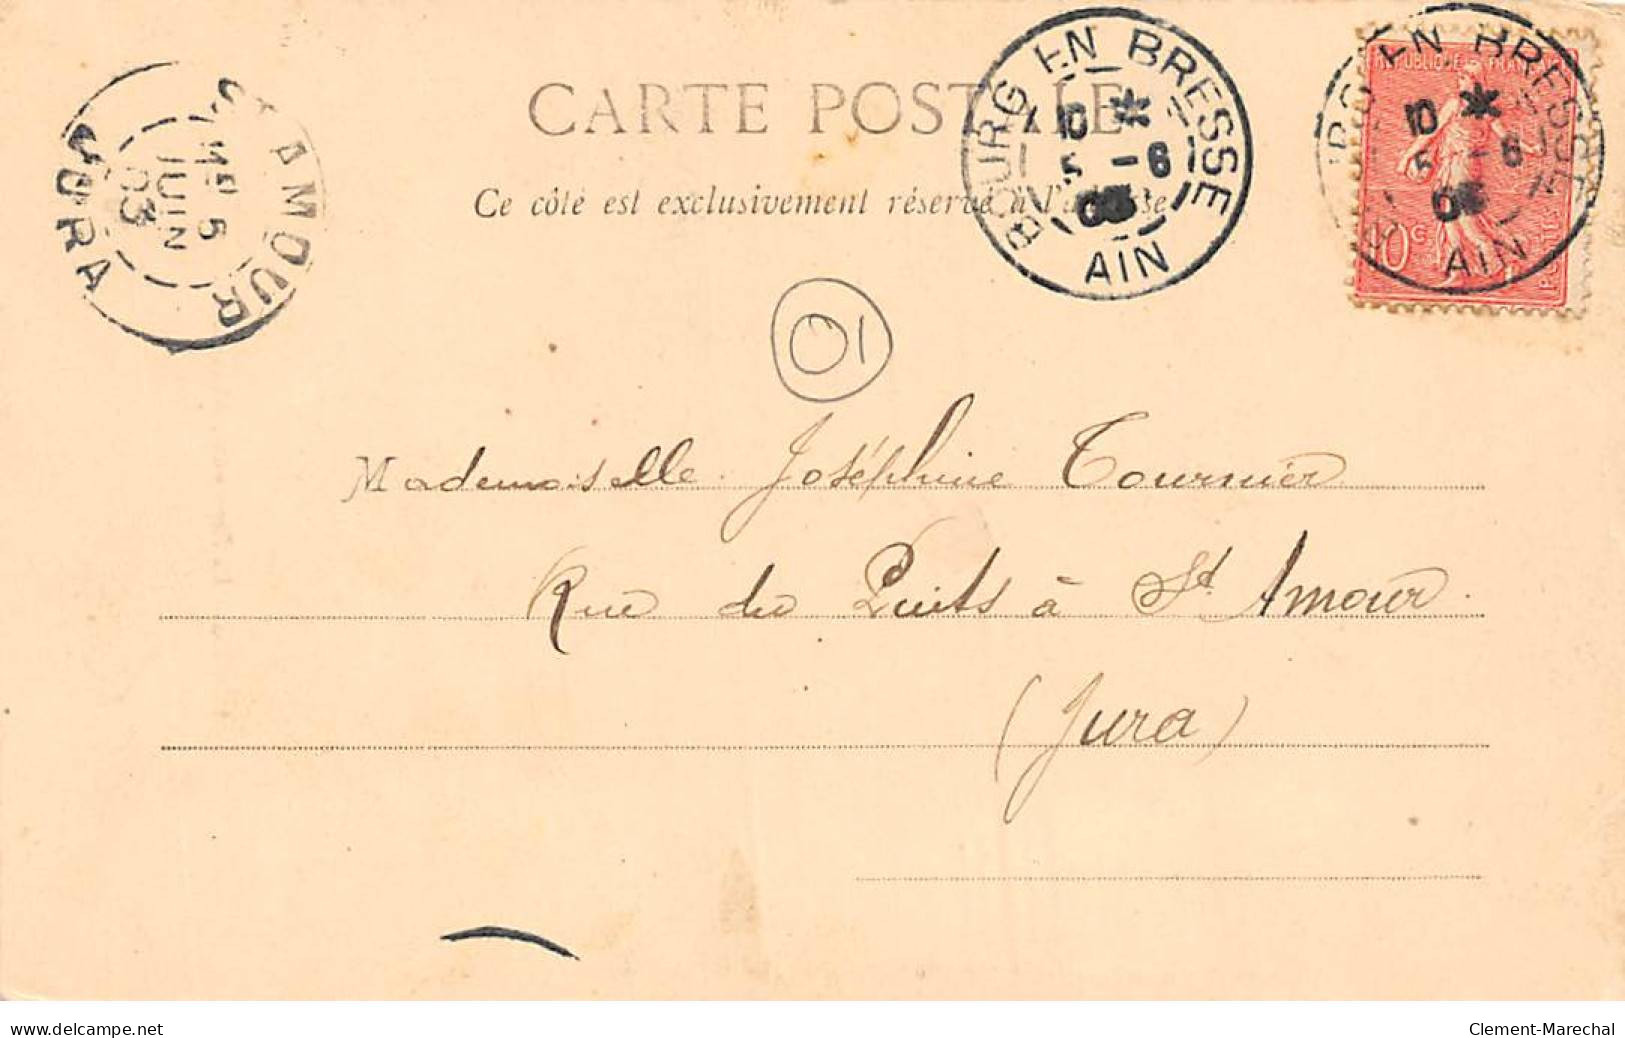 CARTE POSTALE
Ce côté est exclusivement réservé à l'adresse
BOURG EN BRESSE
10 *
5 - 6
AIN
RÉPUBLIQUE FRANÇAISE
10 c
BOURG EN BRESSE
10 *
5 - 6
AIN
ST AMOUR
5
JUIN
03
JURA
01
Mademoiselle Joséphine Tournier
Rue du Puits à St Amour.
(Jura)
www.delcampe.net
Clement-Marechal